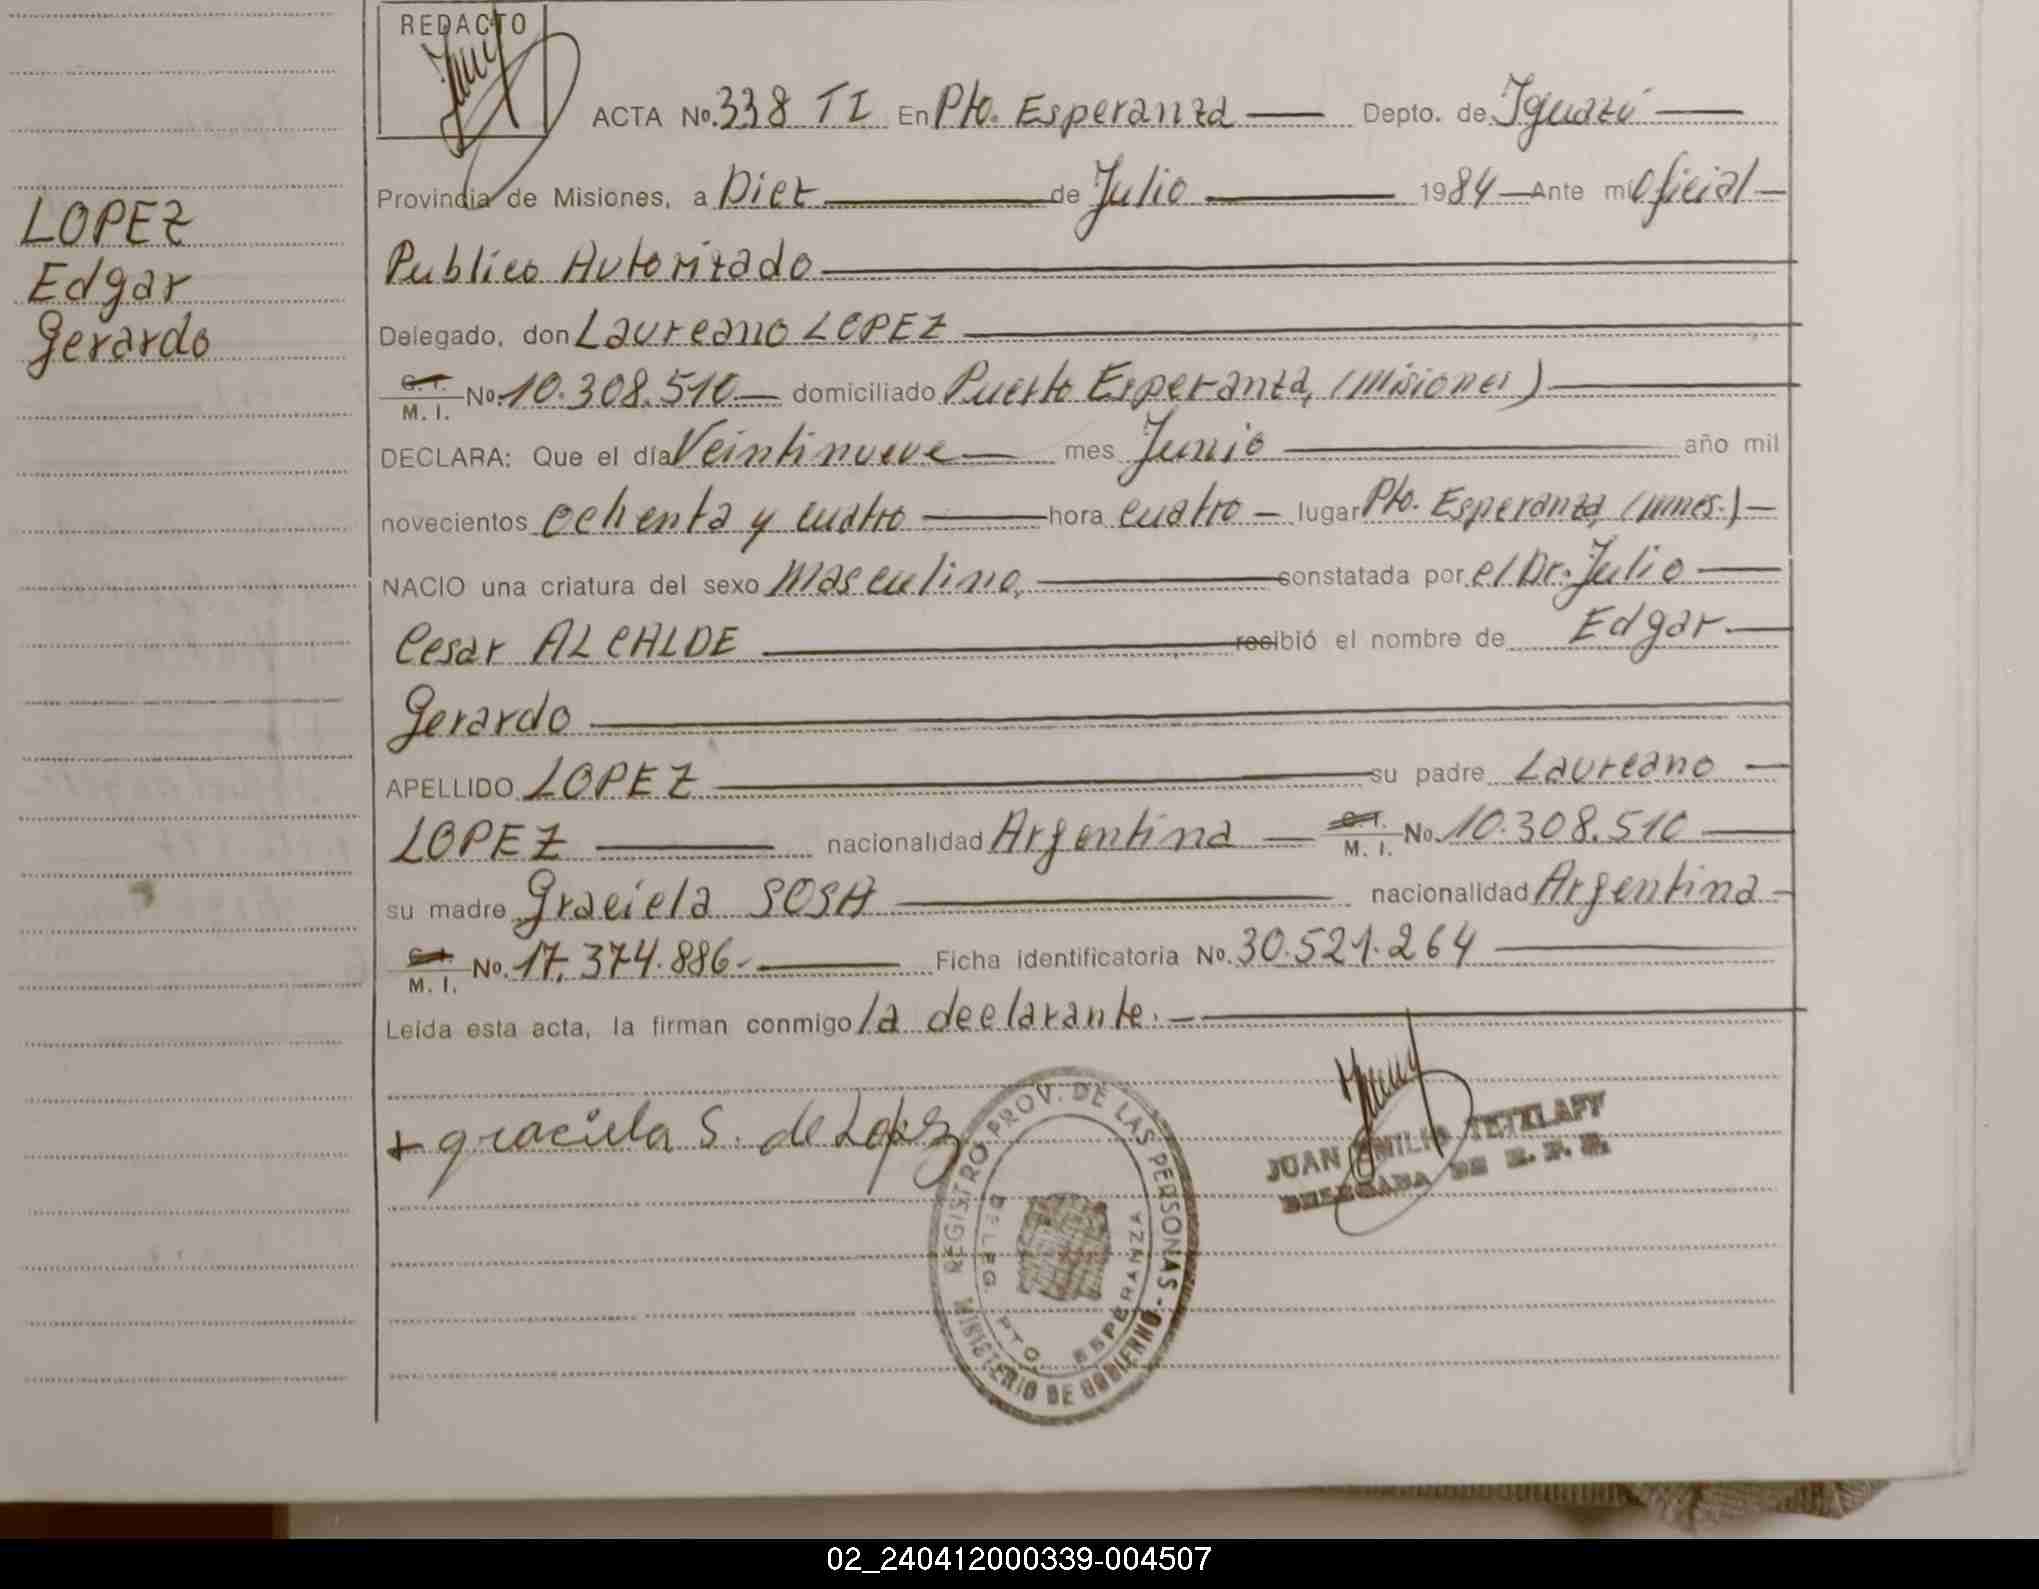 REDACTO
ACTA No. 338 TI En Pto. Esperanza Depto. de Iguazú
Provincia de Misiones, a Diez de Julio 1984 Ante mi Oficial
Publico Autorizado
Delegado, don Laureano LOPEZ
C. I. M. I. No. 10.308.510 domiciliado Puerto Esperanza, (Misiones)
DECLARA: Que el día Veintinueve mes Junio año mil
novecientos ochenta y cuatro hora cuatro lugar Pto. Esperanza, (Mnes.)
NACIO una criatura del sexo Masculino, constatada por el Dr. Julio
Cesar ALCALDE recibió el nombre de Edgar
Gerardo
APELLIDO LOPEZ su padre Laureano
LOPEZ nacionalidad Argentina C. I. M. I. No. 10.308.510
su madre Graciela SOSA nacionalidad Argentina
C. I. M. I. No. 17.374.886- Ficha identificatoria No. 30.521.264
Leída esta acta, la firman conmigo la declarante.
+ graciela S. de Lopez
LOPEZ
Edgar
Gerardo
REGISTRO PROV. DE LAS PERSONAS - MINISTERIO DE GOBIERNO
DELEG. PTO. ESPERANZA
JUAN EMILIO TETZLAFF
DE R. P. P.
02_240412000339-004507